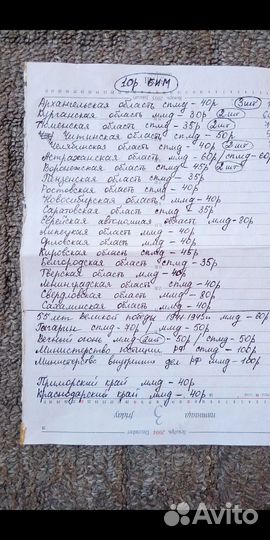 10р БИМ
Архангельская область спмд - 40р 3шт
Курганская область ммд - 30р 2шт
Тюменская область спмд - 35р 2шт
Читинская область спмд - 50р
Челябинская область спмд - 40р 2шт
Астраханская область ммд - 60р / спмд - 60р
Воронежская область спмд - 45р 2шт
Пензенская область спмд - 35р
Ростовская область спмд - 40р
Новосибирская область ммд - 40р
Саратовская область спмд - 35р
Еврейская автономная область ммд - 80р
Липецкая область ммд - 40р
Орловская область ммд - 40р
Кировская область спмд - 45р
Белгородская область спмд - 35р
Тверская область ммд - 40р
Ленинградская область спмд - 40р
Свердловская область ммд - 80р
Сахалинская область ммд - 40р
55 лет великой победы 1941-1945гг ммд - 80р
Гагарин спмд - 40р / ммд - 50р
Вечный огонь ммд 2шт - 50р / спмд - 50р
Министерство юстиции РФ спмд - 100р
Министерство внутренних дел РФ ммд - 100р
Приморский край ммд - 40р
Краснодарский край ммд - 40р
3 пятница friday
Декабрь 2004 December
Avito